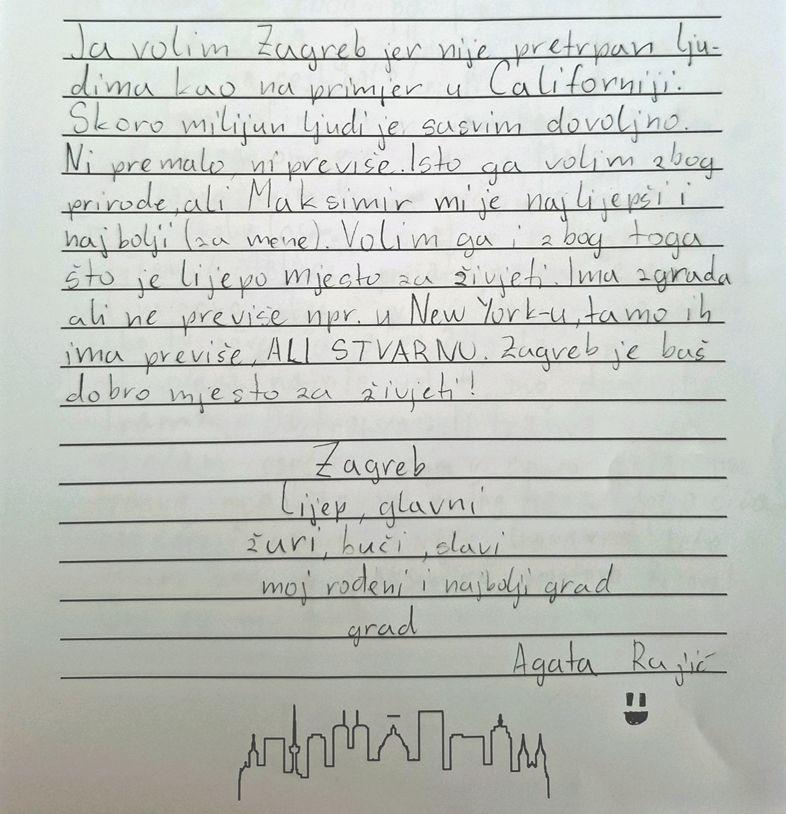 Ja volim Zagreb jer nije pretrpan lju-
dima kao na primjer u Californiji.
Skoro milijun ljudi je sasvim dovoljno.
Ni premalo, ni previše. Isto ga volim zbog
prirode, ali Maksimir mi je najljepši i
najbolji (za mene). Volim ga i zbog toga
što je lijepo mjesto za živjeti. Ima zgrada
ali ne previše npr. u New York-u, tamo ih
ima previše, ALI STVARNO. Zagreb je baš
dobro mjesto za živjeti!
Zagreb
Lijep, glavni
žuri, buči, slavi
moj rođeni i najbolji grad
grad
Agata Rajič